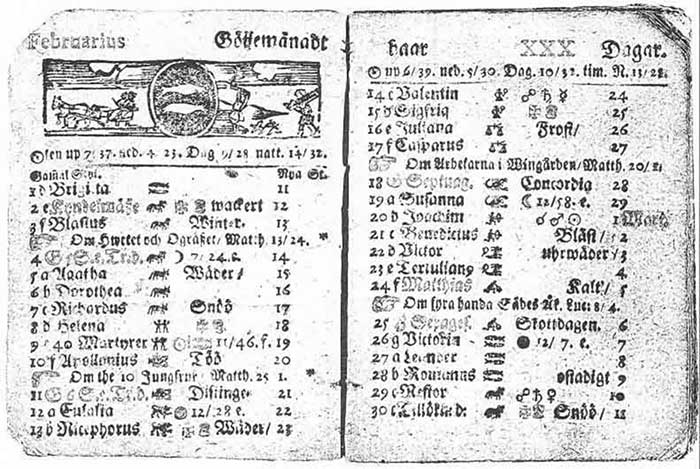 Februarius Göijemånadt
Solen up 7/37. ned. 4 23. Dag 9/28 natt. 14/32.
Gamal Styl. Nya St.
1 d Brigita 11
2 e Kyndelmässe wackert 12
3 f Blasius Winter. 13
Om Hwetet och Ogräset/ Matth. 13/24.
4 G 5 S.e.Tr.d. 7/24.e. 14
5 a Agatha Wäder/ 15
6 b Dorothea 16
7 c Richardus Snöö 17
8 d Helena 18
9 e 40 Martyrer 11/46.f. 19
10 f Apollonius Töö 20
Om the 10 Jungfrur Matth. 25 1.
11 G 6 S.e.Tr.d. Distinge 21
12 a Eulalia 12/28 e. 22
13 b Nicephorus Wäder/ 23
haar XXX Dagar.
☉ up 6/39. ned. 5/30. Dag. 10/32. tim. N. 13/28.
14 c Valentin ☍ ♄ ☿ 24
15 d Sigfrid 25
16 e Juliana Frost/ 26
17 f Casparus 27
Om Arbetarna i Wingården/Matth. 20/1.
18 G Septuag. Concordia 28
19 a Susanna ☾ 12/58.e. 29
20 b Joachim ☌ ♂ ☉ 1 Mart.
21 c Benedictus Bläst/ 2
22 d Victor uhrwäder/ 3
23 e Tertulianꝰ 4
24 f Matthias Kalt/ 5
Om fyra handa Sädes åk. Luc: 8/4.
25 G Sexages. Skottdagen. 6
26 g Victorin ● 12/7. e. 7
27 a Leander 8
28 b Romanus ostadigt 9
29 c Nestor ☍ ♄ ♀ 10
30 c Tillökn.d: Snöö/ 11